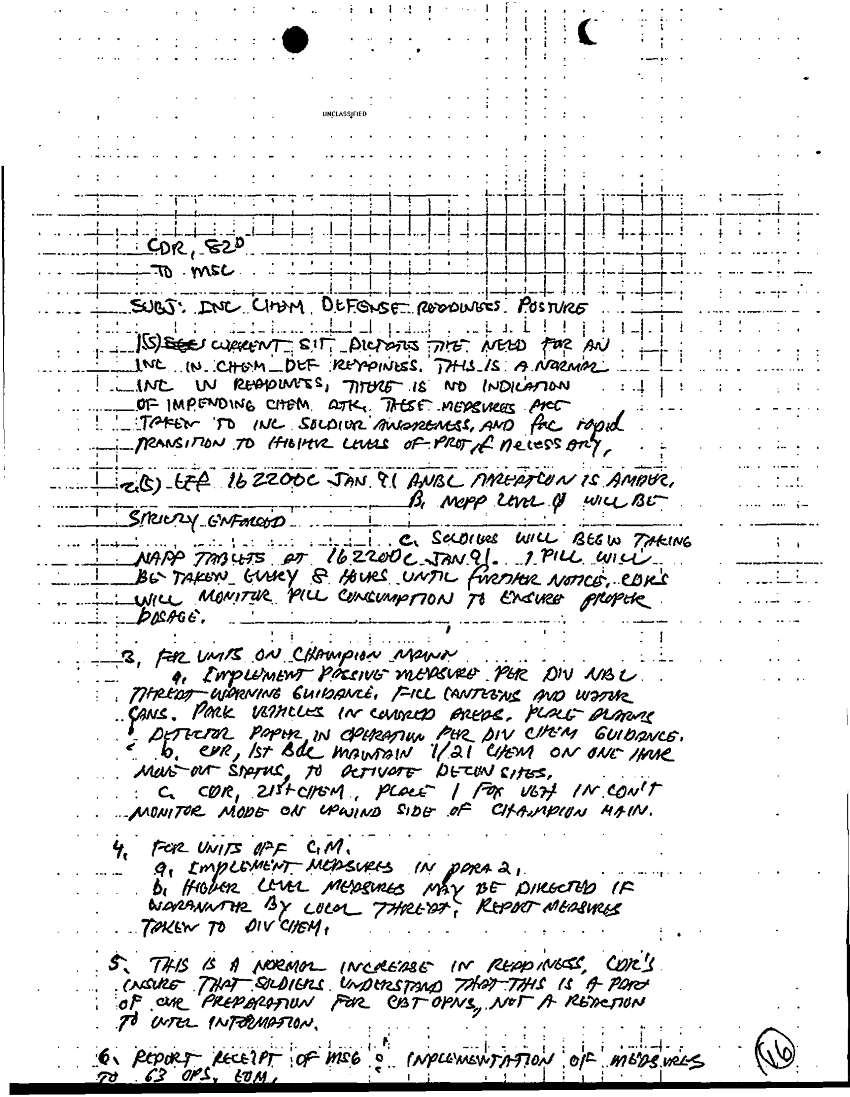 UNCLASSIFIED
CDR, 82D
TO MSC
SUBJ: INC CHEM DEFENSE READINESS POSTURE
1(S) CURRENT SIT DICTATES THE NEED FOR AN
INC IN CHEM DEF READINESS. THIS IS A NORMAL
INC IN READINESS, THERE IS NO INDICATION
OF IMPENDING CHEM ATK. THESE MEASURES ARE
TAKEN TO INC SOLDIER AWARENESS, AND FAC rapid
TRANSITION TO HIGHER LEVELS OF PROT, if necessary,
2.(S) EFF 162200C JAN 91 A. NBC IS AMBER,
B. MOPP LEVEL 0 WILL BE
STRICTLY ENFORCED
C. SOLDIERS WILL BEGIN TAKING
NAPP TABLETS AT 162200C JAN 91. 1 PILL WILL
BE TAKEN EVERY 8 HOURS UNTIL FURTHER NOTICE, CDR'S
WILL MONITOR PILL CONSUMPTION TO ENSURE PROPER
DOSAGE.
3, FOR UNITS ON CHAMPION MAIN
a. IMPLEMENT PASSIVE MEASURE PER DIV NBC
THREAT WARNING GUIDANCE. FILL CANTEENS AND WATER
CANS. PARK VEHICLES IN COVERED AREAS. PLACE ALARMS
DETECTOR PAPER IN OPERATION PER DIV CHEM GUIDANCE.
b. CDR, 1ST BDE MAINTAIN 1/21 CHEM ON ONE HOUR
MOVE OUT STATUS, TO ACTIVATE DECON SITES.
C. CDR, 21ST CHEM, PLACE 1 FOX VEH IN CON'T
MONITOR MODE ON UPWIND SIDE OF CHAMPION MAIN.
4, FOR UNITS OFF C.M.
a, IMPLEMENT MEASURES IN PARA 2,
b, HIGHER LEVEL MEASURES MAY BE DIRECTED IF
BY LOCAL THREAT; REPORT MEASURES
TAKEN TO DIV CHEM,
5. THIS IS A NORMAL INCREASE IN READINESS, CDR'S
INSURE THAT SOLDIERS UNDERSTAND THAT THIS IS A PART
OF OUR PREPARATION FOR CBT OPNS, NOT A REACTION
TO INTEL INFORMATION.
6. REPORT RECEIPT OF MSG & IMPLEMENTATION OF MEASURES
TO G3 OPS, EOM,
46